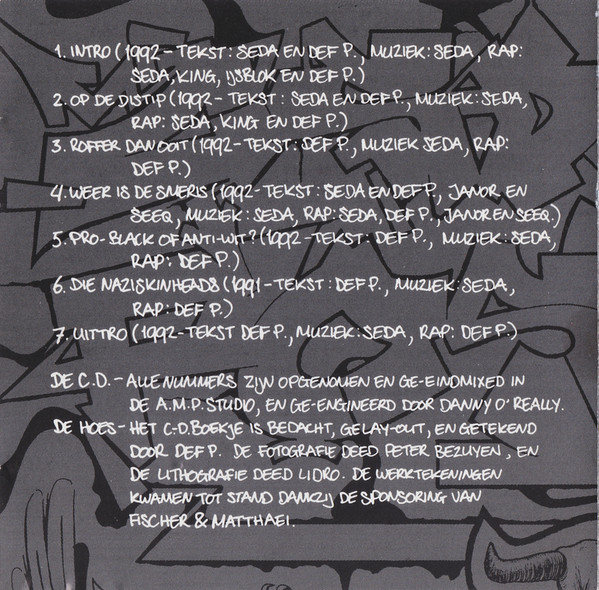 1. INTRO (1992 - TEKST: SEDA EN DEF P., MUZIEK: SEDA, RAP:
SEDA, KING, IJSBLOK EN DEF P.)
2. OP DE DISTIP (1992 - TEKST: SEDA EN DEF P., MUZIEK: SEDA,
RAP: SEDA, KING EN DEF P.)
3. ROFFER DAN OOIT (1992 - TEKST: DEF P., MUZIEK SEDA, RAP:
DEF P.)
4. WEER IS DE SMERIS (1992 - TEKST: SEDA EN DEF P., JANOR EN
SEEQ, MUZIEK: SEDA, RAP: SEDA, DEF P., JANOR EN SEEQ.)
5. PRO-BLACK OF ANTI-WIT? (1992 - TEKST: DEF P., MUZIEK: SEDA,
RAP: DEF P.)
6. DIE NAZISKINHEADS (1991 - TEKST: DEF P., MUZIEK: SEDA,
RAP: DEF P.)
7. UITTRO (1992 - TEKST DEF P., MUZIEK: SEDA, RAP: DEF P.)
DE C.D. - ALLE NUMMERS ZIJN OPGENOMEN EN GE-EINDMIXED IN
DE A.M.P. STUDIO, EN GE-ENGINEERD DOOR DANNY O'REALLY.
DE HOES - HET C-D. BOEKJE IS BEDACHT, GELAY-OUT, EN GETEKEND
DOOR DEF P. DE FOTOGRAFIE DEED PETER BEZUYEN, EN
DE LITHOGRAFIE DEED LIDRO. DE WERKTEKENINGEN
KWAMEN TOT STAND DANKZIJ DE SPONSORING VAN
FISCHER & MATTHAEI.